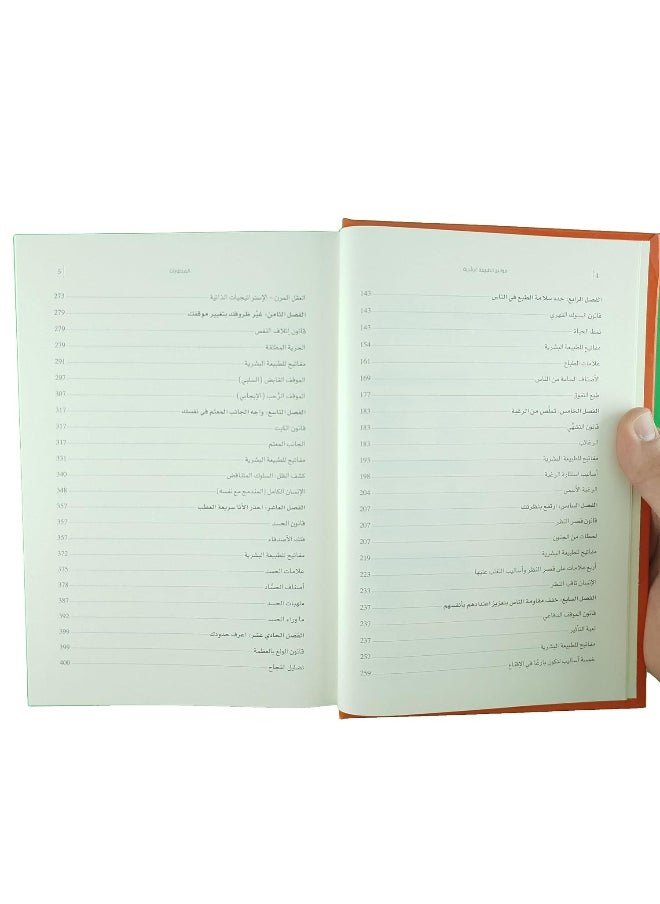 4 قوانين الطبيعة البشرية
الفصل الرابع: حدد سلامة الطبع في الناس 143
قانون السلوك القهري 143
نمط الحياة 143
مفاتيح للطبيعة البشرية 154
علامات الطباع 161
الأصناف السامة من الناس 169
طبع التفوق 177
الفصل الخامس: تملّص من الرغبة 183
قانون التشهّي 183
الرغائب 183
مفاتيح للطبيعة البشرية 193
أساليب استثارة الرغبة 198
الرغبة الأسمى 204
الفصل السادس: ارتفع بنظرتك 207
قانون قصر النظر 207
لحظات من الجنون 207
مفاتيح للطبيعة البشرية 219
أربع علامات على قصر النظر وأساليب التغلب عليها 223
الإنسان ثاقب النظر 233
الفصل السابع: خفف مقاومة الناس بتعزيز اعتدادهم بأنفسهم 237
قانون الموقف الدفاعي 237
لعبة التأثير 237
مفاتيح للطبيعة البشرية 252
خمسة أساليب لتكون بارعًا في الإقناع 259
المحتويات 5
العقل المرن – الإستراتيجيات الذاتية 273
الفصل الثامن: غيّر ظروفك بتغيير موقفك 279
قانون إتلاف النفس 279
الحرية المطلقة 239
مفاتيح للطبيعة البشرية 291
الموقف القابض (السلبي) 297
الموقف الرَّحب (الإيجابي) 307
الفصل التاسع: واجه الجانب المعتم في نفسك 317
قانون الكبت 317
الجانب المعتم 317
مفاتيح للطبيعة البشرية 331
كشف الظل: السلوك المتناقض 340
الإنسان الكامل (المندمج مع نفسه) 348
الفصل العاشر: احذر الأنا سريعة العطب 357
قانون الحسد 357
فتك الأصدقاء 357
مفاتيح للطبيعة البشرية 372
علامات الحسد 375
أصناف الحسَّاد 378
ملهبات الحسد 387
ما وراء الحسد 392
الفصل الحادي عشر: اعرف حدودك 399
قانون الولع بالعظمة 399
تضليل النجاح 400